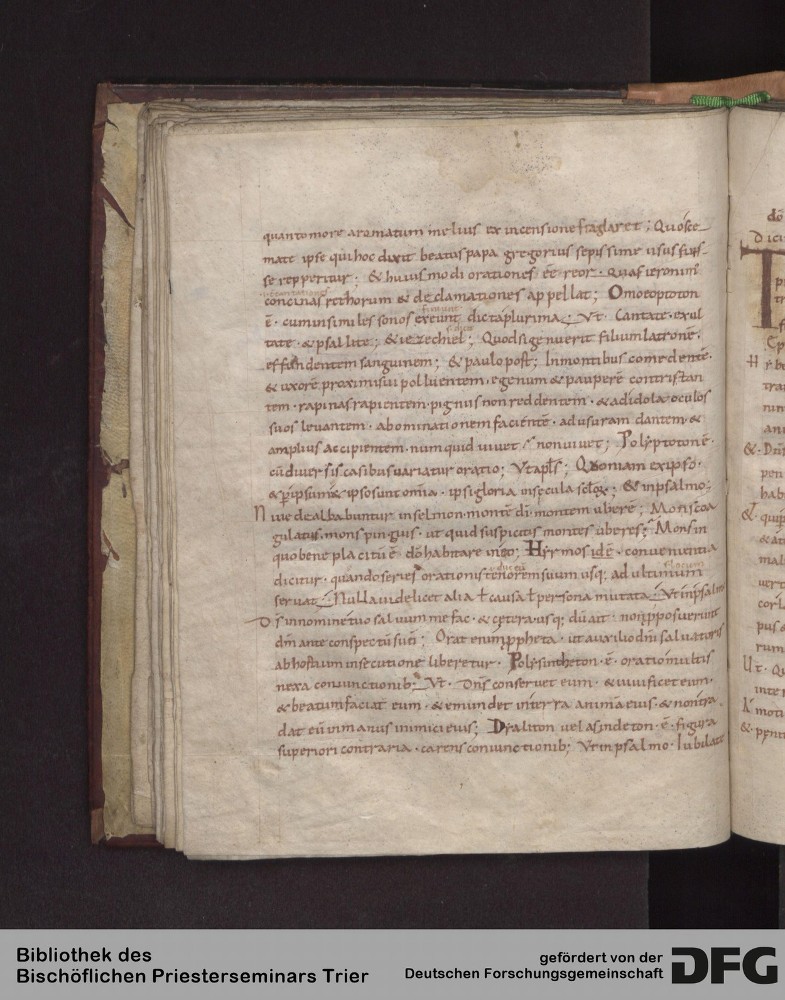 quanto more aromatum melius ex incensione fraglaret; Quo sce
mate ipse qui hoc dixit beatus papa gregorius sepissime usus fuis
se repperitur; & huiusmodi orationes ee reor. quas ieronim
concinas rethorum & declamationes appellat; Omoeoptoton
ē. cum in similes sonos exeunt dicta plurima; Vt. Cantate. exul
tate. & psallite; & iezechiel; Quod si genuerit filium latronē.
effundentem sanguinem; & paulo post; In montibus comedentē.
& uxorē proximi sui polluentem. egenum & pauperē contristan
tem. rapinas rapientem. pignus non reddentem. & ad idola oculos
suos leuantem. abominationem facientē. ad usuram dantem. &
amplius accipientem. numquid uiuet non uiuet; Polyptoton ē.
cū diuersis casibus uariatur oratio; Vt apls; Quoniam ex ipso.
& p ipsum & ipso sunt omīa. ipsi gloria in secula; & in psalmo;
Niue dealbabuntur in selmon. montē dī. montem uberē; Mons coa
gulatus. mons pinguis. ut quid suspicitis montes uberes; Mons in
quo bene placitū ē. dō habitare in eo; Hyrmos idē. conuenientia
dicitur. quando series orationis tenorem suum usq; ad ultimum
seruat; Nulla uidelicet alia ł causa ł persona mutata; Vt in psalmo
Ds in nomine tuo saluum me fac. & cetera usq; dū ait. non pposuerunt
dm ante conspectū suū; Orat enim ppheta. ut auxilio dnī saluatoris
ab hostium insecutione liberetur. Polysintheton. ē. oratio multis
nexa coniunctionib; Vt. Dns conseruet eum. & uiuificet eum.
& beatum faciat eum. & emundet in terra animā eius. & non tra
dat eū in manus inimici eius; Dyaliton uel asindeton. ē. figura
superiori contraria. carens coniunctionib; Vt in psalmo. Iubilate
Bibliothek des
Bischöflichen Priesterseminars Trier
gefördert von der
Deutschen Forschungsgemeinschaft
DFG